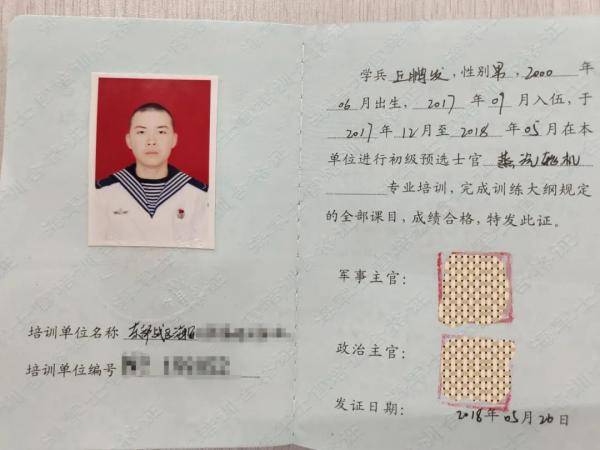 培训单位名称 东部战区海军
培训单位编号
学兵 丘鹏发,性别男,2000 年
06 月出生, 2017 年 09 月入伍,于
2017 年 12 月至 2018 年 05 月在本
单位进行初级预选士官 蒸汽轮机
专业培训,完成训练大纲规定
的全部课目,成绩合格,特发此证。
军事主官:
政治主官:
发证日期: 2018 年 05 月 20 日